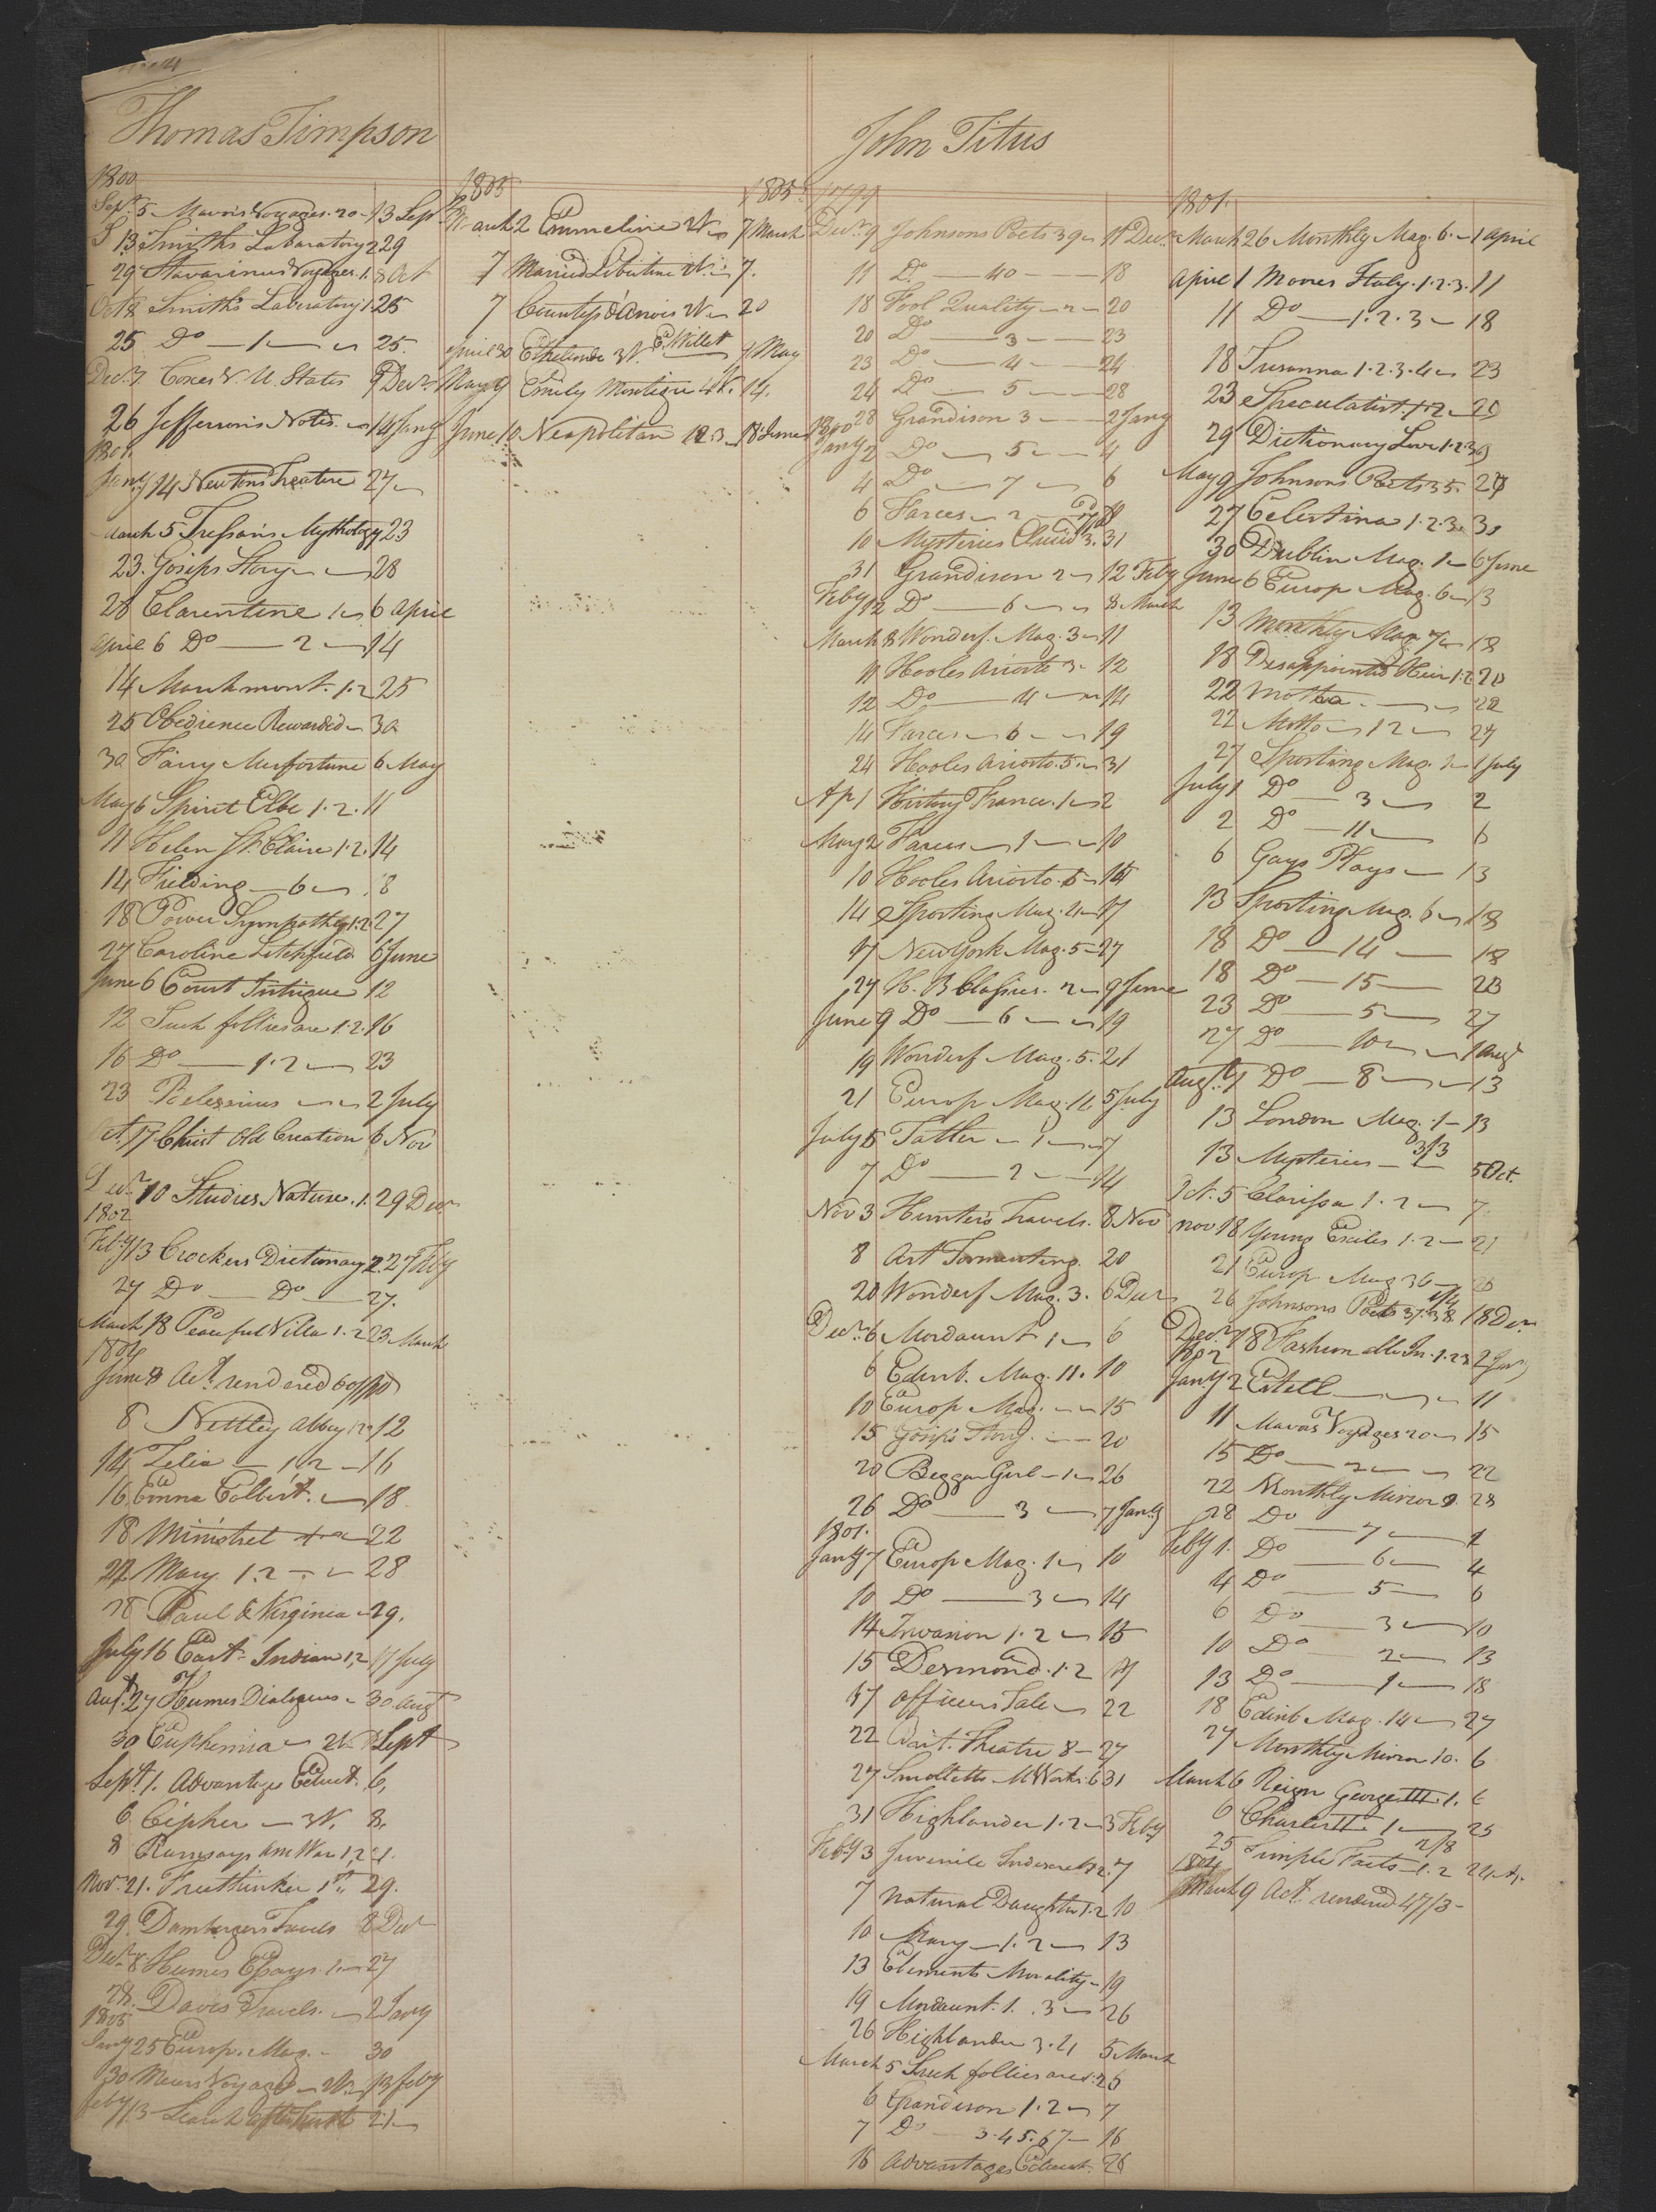 Thomas Timpson
1800
Sept. 5 Mavors Voyages. 20 - 13 Sept
13 Smiths Labaratory 2 29
29 Stavarinus Voyages. 1. 8 Oct
Oct 8 Smiths Laboratory 1 25
25 Do — 1 — 25.
Decr. 7. Coxes V. U. States 9 Decr.
26 Jeffersons Notes. — 14 Jany
1801.
Jany 14 Newtons Treatise 27 —
March 5 Tressan's Mythology 23
23. Gossips Story — 28
28 Clarentine 1 — 6 April
April 6 Do — 2 — 14
14 Marchmont. 1.2 25
25 Obedience Rewarded — 30
30 Fairy Misfortune 6 May
May 6 Spirit Elbe 1. 2. 11
11 Helen St. Claire 1.2. 14
14 Fielding — 6 — 18
18 Power Sympathy 1.2 27
27 Caroline Litchfield 6 June
June 6 Court Intrigue 12
12 Such follies are 1.2. 16
16 Do — 1.2 — 23
23 Belesarius — 2 July
Oct. 17 Christ Old Creation 6 Nov
Decr 10 Studies Nature. 1. 29 Decr.
1802
Feby 13 Crockers Dictionary 2. 27 Feby
27 Do — Do — 27.
March 18 Peaceful Villa 1.2 23 March
1804
June 8 Act. rendered 60/10
8 Nettley Abbey 1.2 12
14 Zelia — 1.2 — 16
16 Emma Colbert. — 18.
18 Minstrel — 22
22 Mary 1.2 — 28
28 Paul & Virginia — 29.
July 16 East Indian 1,2 17 July
Augt. 27 Humes Dialogues — 30 Augt
30 Euphemia — 2V. 1 Sept
Sept. 1. Advantage Educt. 6,
6 Cipher — 3V. 8.
8 Ramsays Am War 1,2 21.
Nov. 21. Freethinker 1st. 29.
29. Dambergers Travels 8 Decr
Decr. 8 Humes Essays. 1. — 27
28. Davis Travels. — 2 Jany
1805
Jany 25 Europ. Mag. — 30
30 Moors Voyage — 2V. — 13 feby
feby 13 Search after 21 —
1805 1805
March 2 Emmeline 2V — 7 March
7 Married Libertine 2V. — 7.
7 Countess d'Anois 2V — 20
April 30 Ethelinde 3V. E. Willet 9 May
May 9 Emily Montigue 4V. 14.
June 10 Neapolitan 1 2.3 — 18 June
John Titus
1799
Decr. 9 Johnsons Poets 39 — 11 Decr.
11 Do. — 40 — 18
18 Fool Quality — 2 — 20
20 Do — 3 — 23
23 Do — 4 — 24
24 Do — 5 — 28
28 Grandison 3 — 2 Jany
1800
Jany 2 Do — 5 — 4
4 Do — 7 — 6
6 Farces — 2 — 10
10 Mysteries 3. 31
31 Grandison 2 — 12 Feby
Feby 12 Do — 6 — 8 March
March 8 Wonderf. Mag. 3 — 11
11 Hooles Ariosto 3 — 12
12 Do — 4 — 14
14 Farces — 6 — 19
24 Hooles Ariosto. 5. — 31
Ap 1 History France. 1 — 2
May 2 Farces — 1 — 10
10 Hooles Ariosto. 5 — 14
14 Sporting Mag. 4 — 17
17 New York Mag. 5 — 27
27 H. B Classics. 2 — 9 June
June 9 Do — 6 — 19
19 Wonderf Mag. 5. 21
21 Europ Mag. 16 5 July
July 5 Tatler — 1 — 7
7 Do — 2 — 14
Nov 3 Hunters Travels. 8 Nov
8 Art Tormenting. 20
20 Wonderf Mag. 3. 6 Decr
Decr. 6 Mordaunt 1 — 6
6 Edinb. Mag. 11. 10
10 Europ Mag. — 15
15 Gosips Story. — 20
20 Beggar Girl — 1 — 26
26 Do — 3 — 7 Jany
1801.
Jany 7 Europ Mag. 1 — 10
10 Do — 3 — 14
14 Invasion 1. 2 — 15
15 Desmond. 1.2 17
17 Officers Tale — 22
22 Brit. Theatre 8 — 27
27 Smolletts M Works 6 31
31 Highlander 1.2 — 3 Feby
Feby 3 Juvenile Indiscrets 2. 7
7 Natural Daughter 1.2 10
10 Mary — 1. 2 — 13
13 Elements Morality — 19
19 Mordaunt. 1. .3 — 26
26 Highlander 3.4 5 March
March 5 Such follies are 1. 25
6 Grandison 1. 2 — 7
7 Do — 3.4 5. 6 7 — 16
16 Advantages Educat. 26
1801.
March 26 Monthly Mag. 6. — 1 April
April 1 Moores Italy. 1. 2. 3. 11
11 Do — 1. 2. 3 — 18
18. Susanna 1. 2. 3. 4 — 23
23 Speculatist. 1 2 — 29
29 Dictionary Love 1. 2 3 9
May 9 Johnsons Poets 35. 27
27 Celestina 1. 2. 3. 30
30 Dublin Mag. 1 — 6 June
June 6 Europ Mag. 6 — 13
13 Monthly Mag. 7 — 18
18 Disappointed Heir 1.2 22
22 Motto — 22
22 Motto — 1 2 — 27
27 Sporting Mag. 1 — 1 July
July 1 Do — 3 — 2
2 Do — 11 — 6
6 Gays Plays — 13
13 Sporting Mag. 6 — 18
18 Do — 14 — 18
18 Do — 15 — 23
23 Do — 5 — 27
27 Do — 10 — 1 Augt
Augt. 1 Do — 8 — 13
13 London Mag. 1 — 13
13 Mysteries — 3/3 5 Oct.
Oct. 5 Clarissa 1. 2 — 7
Nov 18 Young Exiles 1. 2 — 21
21 Europ Mag 36 — 26
26 Johnsons Poets 37. 38 18 Dec.
Decr. 18 Fashionable In. 1. 2 3 2 Jany
1802
Jany 2 Estell — 11
11 Mavors Voyages 20 — 15
15 Do — 2 — 22
22 Monthly Mirror 9. 28
28 Do — 7 — 1
Feby 1. Do — 6 — 4
4 Do — 5 — 6
6 Do — 3 — 10
10 Do — 2 — 13
13 Do — 1 — 18
18 Edinb Mag. 14 — 27
27 Monthly Mirror 10. 6
March 6 Reign George III. 1. 6
6 Charles II. 1 — 25
25 Simple Facts — 1. 2 24 Ap.
1804
March 9 Act. rendered 47/3 —